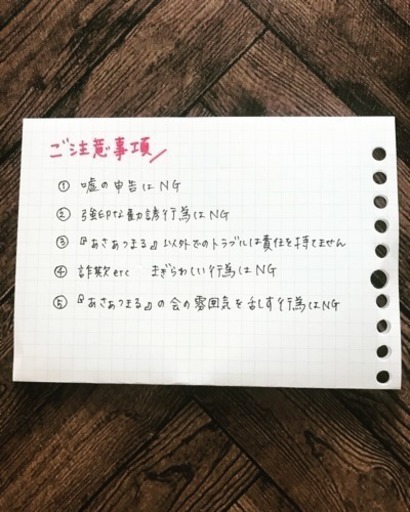 ご注意事項
① 嘘の申告はNG
② 強印な勧誘行為はNG
③ 『あさあつまる』以外でのトラブルは責任を持てません
④ 詐欺etc まぎらわしい行為はNG
⑤ 『あさあつまる』の会の雰囲気を乱す行為はNG